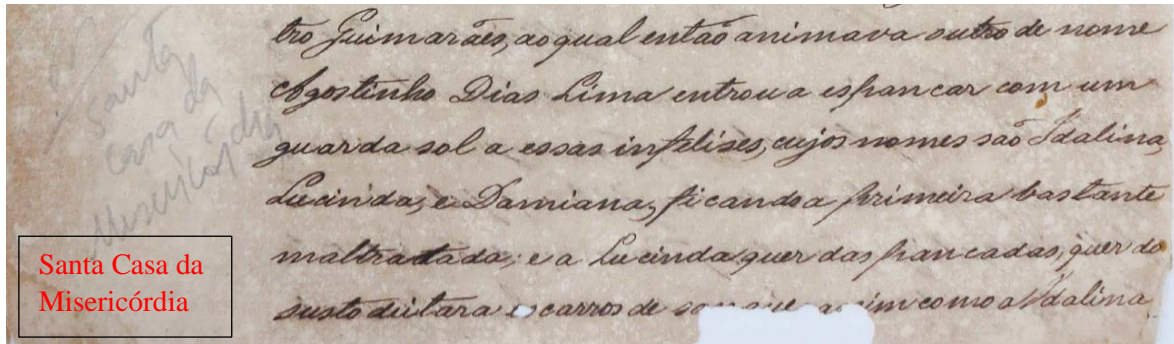 Santa
casa da
Misericórdia
tro Guimarães, ao qual então animava outro de nome
Agostinho Dias Lima entrou a espancar com um
guarda sol a essas infelises, cujos nomes são Idalina,
Lucinda, e Damiana, ficando a primeira bastante
maltratada; e a Lucinda quer das pancadas, quer do
susto deitara escarros de sangue assim como a Idalina
Santa Casa da
Misericórdia